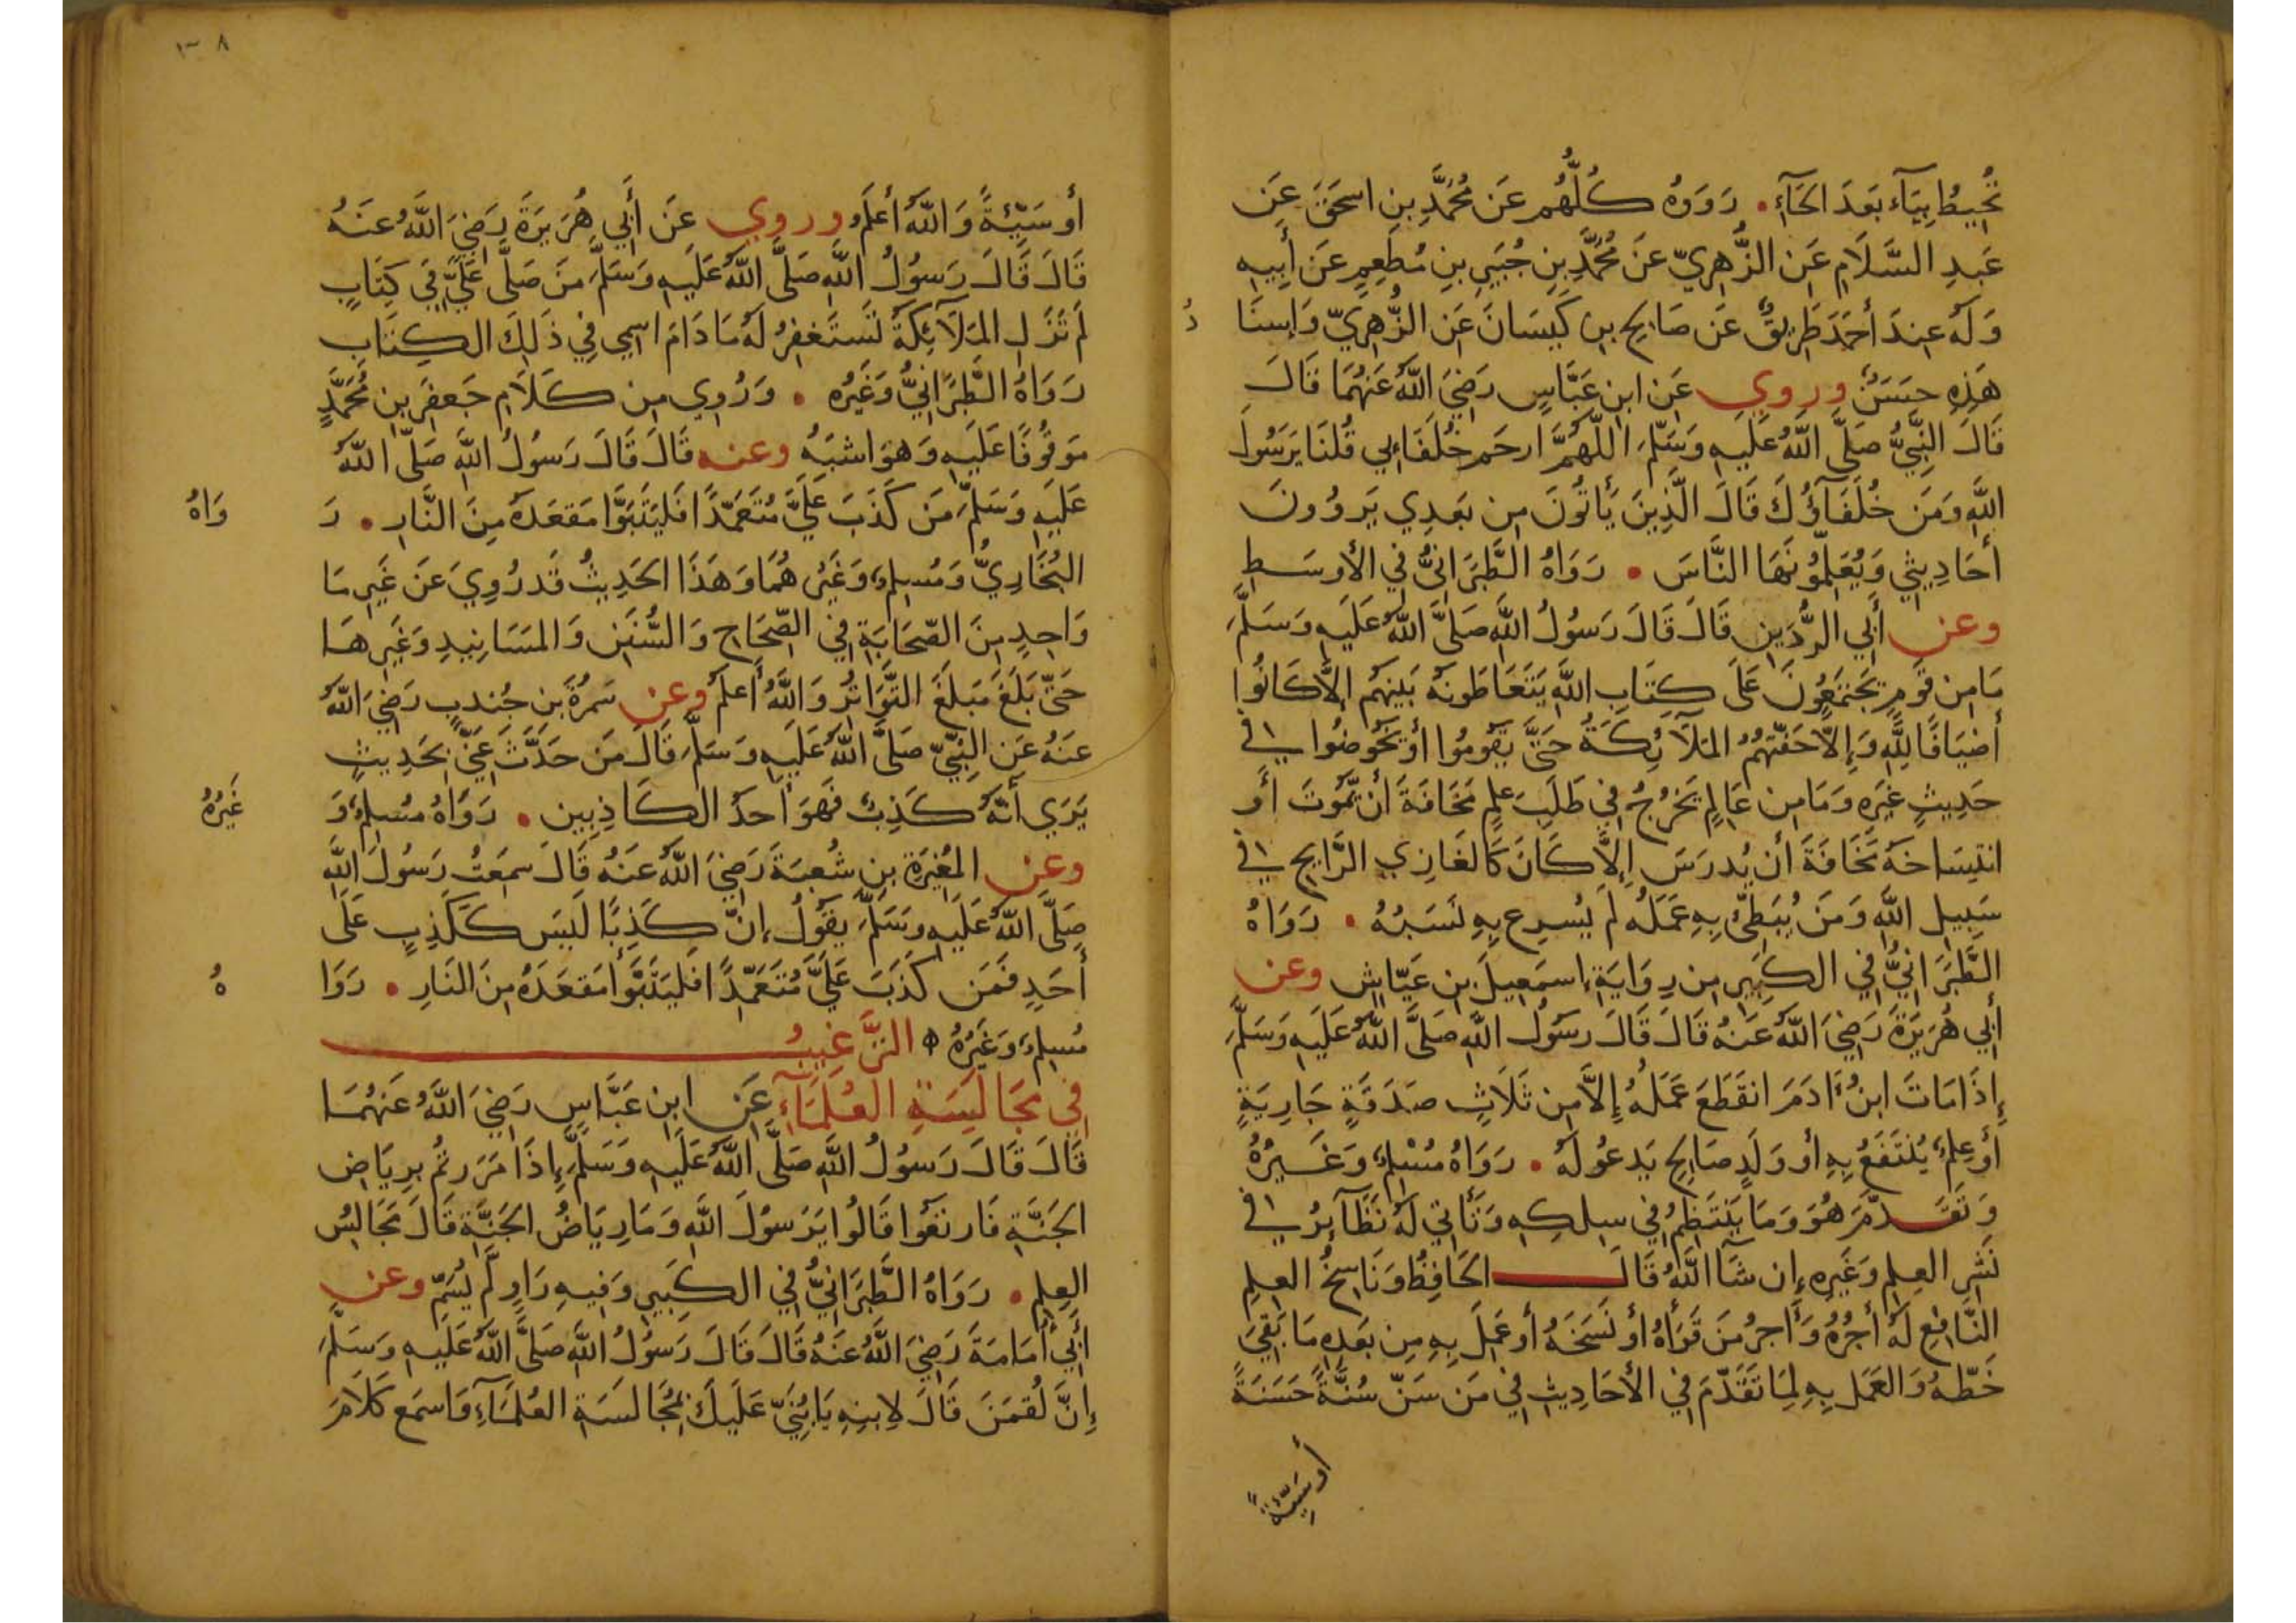 تُحِيطُ بِيَآءٍ بَعدَ الحَآءِ • رَوَوهُ كُلُّهُم عَن مُحَمَّدِ بنِ اسحَقَ عَن
عَبدِ السَّلَامِ عَن الزُّهرِيّ عَن مُحَمَّدِ بنِ جُبَيرِ بنِ مُطعِمٍ عَن أَبِيهِ
وَلَهُ عِندَ أَحمَدَ طَرِيقٌ عَن صَالِحِ بنِ كَيسَانَ عَن الزُّهرِيّ وَإِسنَا دُ
هَذِهِ حَسَنٌ وروي عَن ابنِ عَبَّاسٍ رَضِيَ اللَّهُ عَنهُمَا قَالَ
قَالَ النَّبِيُّ صَلَّى اللَّهُ عَلَيهِ وَسَلَّمَ اللَّهُمَّ ارحَم خُلَفَاءِي قُلنَا يَرَسُولَ
اللَّهِ وَمَن خُلَفَآؤُكَ قَالَ الَّذِينَ يَأتُونَ مِن بَعدِي يَروُونَ
أَحَادِيثِي وَيُعَلِّمُونَهَا النَّاسَ • رَوَاهُ الطَّبَرَانِيُّ فِي الأَوسَطِ
وعن أَبِي الرُّدَينِ قَالَ قَالَ رَسُولُ اللَّهِ صَلَّى اللَّهُ عَلَيهِ وَسَلَّمَ
مَا مِن قَومٍ يَجتَمِعُونَ عَلَى كِتَابِ اللَّهِ يَتَعَاطَونَهُ بَينَهُم إِلَّا كَانُوا
أَضيَافًا لِلَّهِ وَإِلَّا حَفَّتهُمُ المَلَآئِكَةُ حَتَّى يَقُومُوا أَو يَخُوضُوا فِي
حَدِيثٍ غَيرِهِ وَمَا مِن عَالِمٍ يَخرُجُ فِي طَلَبِ عِلمٍ مَخَافَةَ أَن يَمُوتَ أَو
انتِسَاخَهُ مَخَافَةَ أَن يُدرَسَ إِلَّا كَانَ كَالغَازِي الرَّايِحِ فِي
سَبِيلِ اللَّهِ وَمَن يُبَطِّئ بِهِ عَمَلُهُ لَم يُسرِع بِهِ نَسَبُهُ • رَوَاهُ
الطَّبَرَانِيُّ فِي الكَبِيرِ مِن رِوَايَةِ إِسمَعِيلَ بنِ عَيَّاشٍ وعن
أَبِي هُرَيرَةَ رَضِيَ اللَّهُ عَنهُ قَالَ قَالَ رَسُولُ اللَّهِ صَلَّى اللَّهُ عَلَيهِ وَسَلَّمَ
إِذَا مَاتَ ابنُ ءَادَمَ انقَطَعَ عَمَلُهُ إِلَّا مِن ثَلَاثٍ صَدَقَةٍ جَارِيَةٍ
أَو عِلمٍ يُنتَفَعُ بِهِ أَو وَلَدٍ صَالِحٍ يَدعُو لَهُ • رَوَاهُ مُسْلِمٌ وَغَيرُهُ
وَتَقَدَّمَ هُوَ وَمَا يَنتَظِمُ فِي سِلكِهِ وَتَأتِي لَهُ نَظَآيِرُ فِي
نَشرِ العِلمِ وَغَيرِهِ إِن شَآءَ اللَّهُ قَالَ الحَافِظُ وَنَاسِخُ العِلمِ
النَّافِعِ لَهُ أَجرُهُ وَأَجرُ مَن قَرَأَهُ أَو نَسَخَهُ أَو عَمِلَ بِهِ مِن بَعدِهِ مَا بَقِيَ
خَطُّهُ وَالعَمَلُ بِهِ لِمَا تَقَدَّمَ فِي الأَحَادِيثِ فِي مَن سَنَّ سُنَّةً حَسَنَةً
أَو سَيِّئَةً
١٠٨
أَو سَيِّئَةً وَاللَّهُ أَعلَمُ وروي عَن أَبِي هُرَيرَةَ رَضِيَ اللَّهُ عَنهُ
قَالَ قَالَ رَسُولُ اللَّهِ صَلَّى اللَّهُ عَلَيهِ وَسَلَّمَ مَن صَلَّى عَلَيَّ فِي كِتَابٍ
لَم تَزَلِ المَلَآئِكَةُ تَستَغفِرُ لَهُ مَا دَامَ اسمِي فِي ذَلِكَ الكِتَابِ
رَوَاهُ الطَّبَرَانِيُّ وَغَيرُه • وَرُوِي مِن كَلَامِ جَعفَرِ بنِ مُحَمَّدٍ
مَوقُوفًا عَلَيهِ وَهوَ اشبَهُ وعنه قَالَ قَالَ رَسُولُ اللَّهِ صَلَّى اللَّهُ
عَلَيهِ وَسَلَّمَ مَن كَذَبَ عَلَيَّ مُتَعَمِّدًا فَليَتَبَوَّا مَقعَدَهُ مِنَ النَّارِ • رَ وَاهُ
البُخَارِيُّ وَمُسلِمٌ وَغَيرُهُمَا وَهَذَا الحَدِيثُ قَد رُوِيَ عَن غَيرِ مَا
وَاحِدٍ مِنَ الصَّحَابَةِ فِي الصِّحَاحِ وَالسُّنَنِ وَالمَسَانِيدِ وَغَيرِهَا
حَتَّى بَلَغَ مَبلَغَ التَّوَاتُرِ وَاللَّهُ أَعلَمُ وعن سَمُرَةَ بنِ جُندبٍ رَضِيَ اللَّهُ
عَنهُ عَنِ النَّبِيِّ صَلَّى اللَّهُ عَلَيهِ وَسَلَّمَ قَالَ مَن حَدَّثَ عَنِّي بِحَدِيثٍ
يَرَى أَنَّهُ كَذِبٌ فَهوَ أَحَدُ الكَاذِبِين • رَوَاهُ مُسلِمٌ وَ غَيرُهُ
وعن المُغِيرَةِ بنِ شُعبَةَ رَضِيَ اللَّهُ عَنهُ قَالَ سَمِعتُ رَسُولَ اللَّهِ
صَلَّى اللَّهُ عَلَيهِ وَسَلَّمَ يَقُولُ إِنَّ كَذِبًا لَيسَ كَكَذِبٍ عَلَى
أَحَدٍ فَمَن كَذَبَ عَلَيَّ مُتَعَمِّدًا فَليَتَبَوَّأ مَقعَدَهُ مِنَ النَارِ • رَوَا هُ
مُسلِمٌ وَغَيرُهُ التَّرغِيبُ
فِي مُجَالَسَةِ العُلَمَآءِ عَن ابنِ عَبَّاسٍ رَضِيَ اللَّهُ عَنهُمَا
قَالَ قَالَ رَسُولُ اللَّهِ صَلَّى اللَّهُ عَلَيهِ وَسَلَّمَ إِذَا مَرَرتُم بِرِيَاضِ
الجَنَّةِ فَارتَعُوا قَالُوا يَرَسُولَ اللَّهِ وَمَا رِيَاضُ الجَنَّةِ قَالَ مَجَالِسُ
العِلمِ • رَوَاهُ الطَّبَرَانِيُّ فِي الكَبِيرِ وَفِيهِ رَاوٍ لَم يُسَمَّ وعن
أَبِي أُمَامَةَ رَضِيَ اللَّهُ عَنهُ قَالَ قَالَ رَسُولُ اللَّهِ صَلَّى اللَّهُ عَلَيهِ وَسَلَّمَ
إِنَّ لُقمَنَ قَالَ لِابنِهِ يَا بُنَيَّ عَلَيكَ بِمُجَالَسَةِ العُلَمَآءِ وَاسمَع كَلَامَ